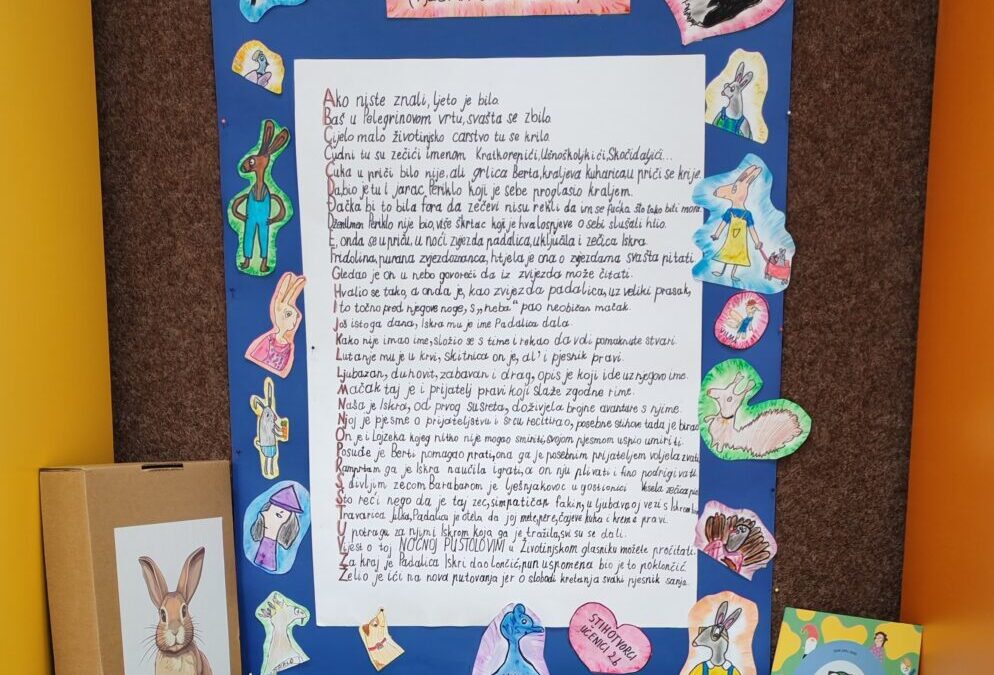 Ako niste znali, ljeto je bilo.
Baš u Pelegrinovom vrtu, svašta se zbilo.
Cijelo malo životinjsko carstvo tu se krilo.
Čudni tu su zečići imenom Kratkorepići, Ušnoškoljkići, Skočidaljići...
Ćuka u priči bilo nije, ali grlica Berta, kraljeva kuharica u priči se krije.
Da, bio je tu i jarac Periklo koji je sebe proglasio kraljem.
Đačka bi to bila fora da zečevi nisu rekli da im se fućka što tako biti mora.
Džentlmen Periklo nije bio, više škrtac koji je hvalospjeve o sebi slušati htio.
E, onda se u priču, u noći zvijezda padalica, uključila i zečica Iskra.
Fridolina, purana zvjezdoznanca, htjela je ona o zvijezdama svašta pitati.
Gledao je on u nebo govoreći da iz zvijezda može čitati.
Hvalio se tako, a onda je, kao zvijezda padalica, uz veliki prasak,
I to točno pred njegove noge, s „neba“ pao neobičan mačak.
Još istoga dana, Iskra mu je ime Padalica dala.
Kako nije imao ime, složio se s time i rekao da voli pomaknute stvari.
Lutanje mu je u krvi, skitnica on je, al' i pjesnik pravi.
Ljubazan, duhovit, zabavan i drag, opis je koji ide uz njegovo ime.
Mačak taj je i prijatelj pravi koji slaže zgodne rime.
Naša je Iskra, od prvog susreta, doživjela brojne avanture s njime.
Njoj je pjesme o prijateljstvu i srcu recitirao, posebne stihove tada je birao
On je i Lojzeka kojeg nitko nije mogao smiriti, svojom pjesmom uspio umiriti.
Posuđe je Berti pomagao prati, ona ga je posebnim prijateljem voljela zvati.
Ramplam ga je Iskra naučila igrati, a on nju plivati i fino podrigivati.
S divljim zecom Barabarom je Lješnjakovac u gostionici Vesela zečica pio
Što reći nego da je taj zec, simpatičan fakin, u ljubavnoj vezi s Iskrom bio
Travarica Julka, Padalicu je htela da joj mete, pere, čajeve kuha i kreme pravi.
U potragu za njim i Iskrom koja ga je tražila, svi su se dali.
Vijest o toj NOĆNOJ PUSTOLOVINI u Životinjskom glasniku možete pročitati.
Za kraj je Padalica Iskri dao lončić, pun uspomena bio je to poklončić.
Želio je ići na nova putovanja jer o slobodi kretanja svaki pjesnik sanja.
STIHOTVORCI
UČENICI 2.b